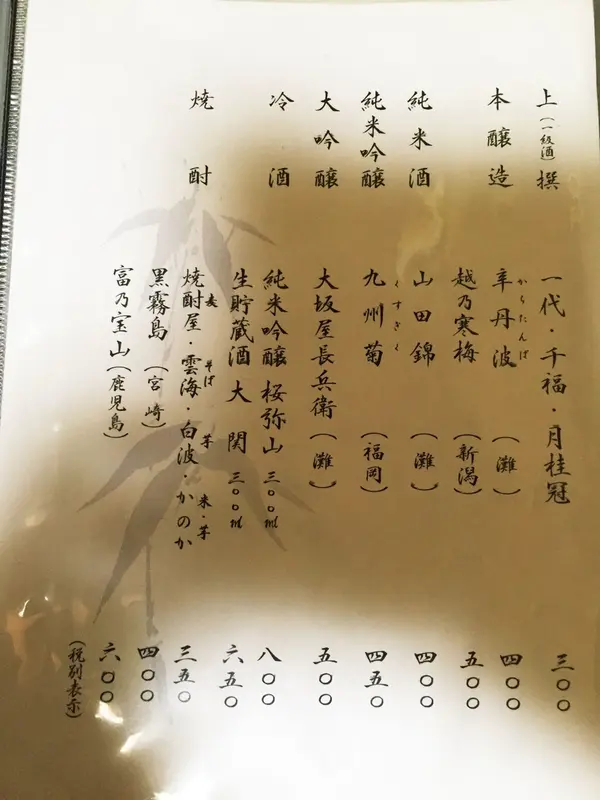 上撰(一級酒) 一代・千福・月桂冠 三〇〇
本醸造 辛丹波(灘) 四〇〇
からたんば
越乃寒梅(新潟) 五〇〇
純米酒 山田錦(灘) 四〇〇
純米吟醸 九州菊(福岡) 四五〇
くすぎく
大吟醸 大坂屋長兵衛(灘) 五〇〇
冷酒 純米吟醸 桜弥山 三〇〇ml 八〇〇
生貯蔵酒 大関 三〇〇ml 六五〇
焼酎 焼酎屋・雲海・白波・かのか 三五〇
麦 そば 芋 米・芋
黒霧島(宮崎) 四〇〇
富乃宝山(鹿児島) 六〇〇
(税別表示)